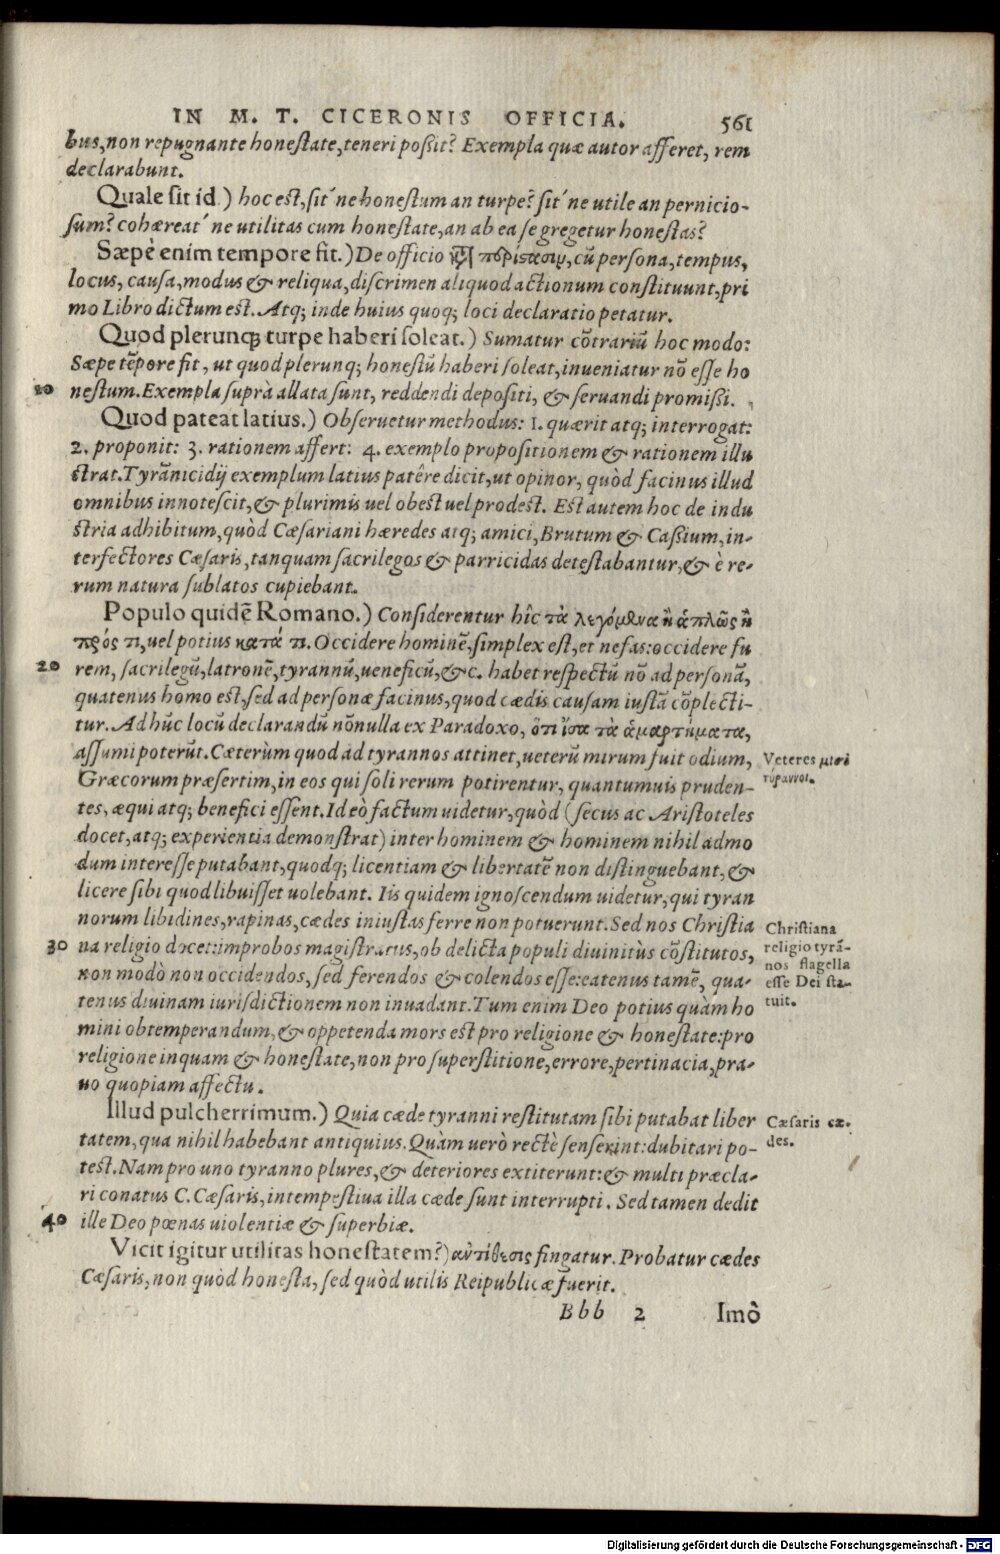 IN M. T. CICERONIS OFFICIA. 561
bus, non repugnante honeſtate, teneri poſsit? Exempla quæ autor afferet, rem
declarabunt.
Quale ſit id.) hoc eſt, ſit´ne honeſtum an turpe? ſit´ne utile an pernicio-
ſum? cohæreat´ne utilitas cum honeſtate, an ab ea ſegregetur honeſtas?
Sæpè enim tempore fit.) De officio περίστασιν, cũ perſona, tempus,
locus, cauſa, modus & reliqua, diſcrimen aliquod actionum conſtituunt, pri
mo Libro dictum eſt. Atq; inde huius quoq; loci declaratio petatur.
Quod plerunq; turpe haberi ſoleat.) Sumatur cõtrariũ hoc modo:
Sæpe tẽpore fit, ut quod plerunq; honeſtũ haberi ſoleat, inueniatur nõ eſſe ho
10 neſtum. Exempla ſuprà allata ſunt, reddendi depoſiti, & ſeruandi promißi.
Quod pateat latius.) Obſeruetur methodus: 1. quærit atq; interrogat:
2. proponit: 3. rationem affert: 4. exemplo propoſitionem & rationem illu
ſtrat. Tyrãnicidij exemplum latius patêre dicit, ut opinor, quòd facinus illud
omnibus innoteſcit, & plurimis uel obeſt uel prodeſt. Eſt autem hoc de indu
ſtria adhibitum, quòd Cæſariani hæredes atq; amici, Brutum & Caßium, in-
terfectores Cæſaris, tanquam ſacrilegos & parricidas deteſtabantur, & è re-
rum natura ſublatos cupiebant.
Populo quidẽ Romano.) Conſiderentur hîc τὰ λεγόμενα ἢ ἁπλῶς ἢ
πρός τι, uel potius κατά τι. Occidere hominẽ, ſimplex eſt, et nefas: occidere fu
20 rem, ſacrilegũ, latronẽ, tyrannũ, ueneficũ, &c. habet reſpectũ nõ ad perſonã,
quatenus homo eſt, ſed ad perſonæ facinus, quod cædis cauſam iuſtã cõplecti-
tur. Ad hũc locũ declarandũ nõnulla ex Paradoxo, ὅτι ἴσα τὰ ἁμαρτήματα,
aſſumi poterũt. Cæterùm quod ad tyrannos attinet, ueterũ mirum fuit odium,
Veteres μισο
τύραννοι.
Græcorum præſertim, in eos qui ſoli rerum potirentur, quantumuis pruden-
tes, æqui atq; benefici eſſent. Id eò factum uidetur, quòd (ſecus ac Ariſtoteles
docet, atq; experientia demonſtrat) inter hominem & hominem nihil admo
dum intereſſe putabant, quodq; licentiam & libertatẽ non diſtinguebant, &
licere ſibi quod libuiſſet uolebant. Iis quidem ignoſcendum uidetur, qui tyran
norum libidines, rapinas, cædes iniuſtas ferre non potuerunt. Sed nos Chriſtia
30 na religio docet: improbos magiſtratus, ob delicta populi diuinitùs cõſtitutos,
non modò non occidendos, ſed ferendos & colendos eſſe: eatenus tamẽ, qua-
tenus diuinam iuriſdictionem non inuadant. Tum enim Deo potius quàm ho
mini obtemperandum, & oppetenda mors eſt pro religione & honeſtate: pro
religione inquam & honeſtate, non pro ſuperſtitione, errore, pertinacia, pra-
uo quopiam affectu.
Chriſtiana
religio tyrã-
nos flagella
eſſe Dei ſta-
tuit.
Illud pulcherrimum.) Quia cæde tyranni reſtitutam ſibi putabat liber
tatem, qua nihil habebant antiquius. Quàm uerò rectè ſenſerint: dubitari po-
teſt. Nam pro uno tyranno plures, & deteriores extiterunt: & multi præcla-
ri conatus C. Cæſaris, intempeſtiua illa cæde ſunt interrupti. Sed tamen dedit
40 ille Deo pœnas uiolentiæ & ſuperbiæ.
Cæſaris cæ-
des.
Vicit igitur utilitas honeſtatem?) ἀντίθεσις fingatur. Probatur cædes
Cæſaris, non quòd honeſta, ſed quòd utilis Reipublicæ fuerit.
Bbb 2 Imò
Digitalisierung gefördert durch die Deutsche Forschungsgemeinschaft - DFG